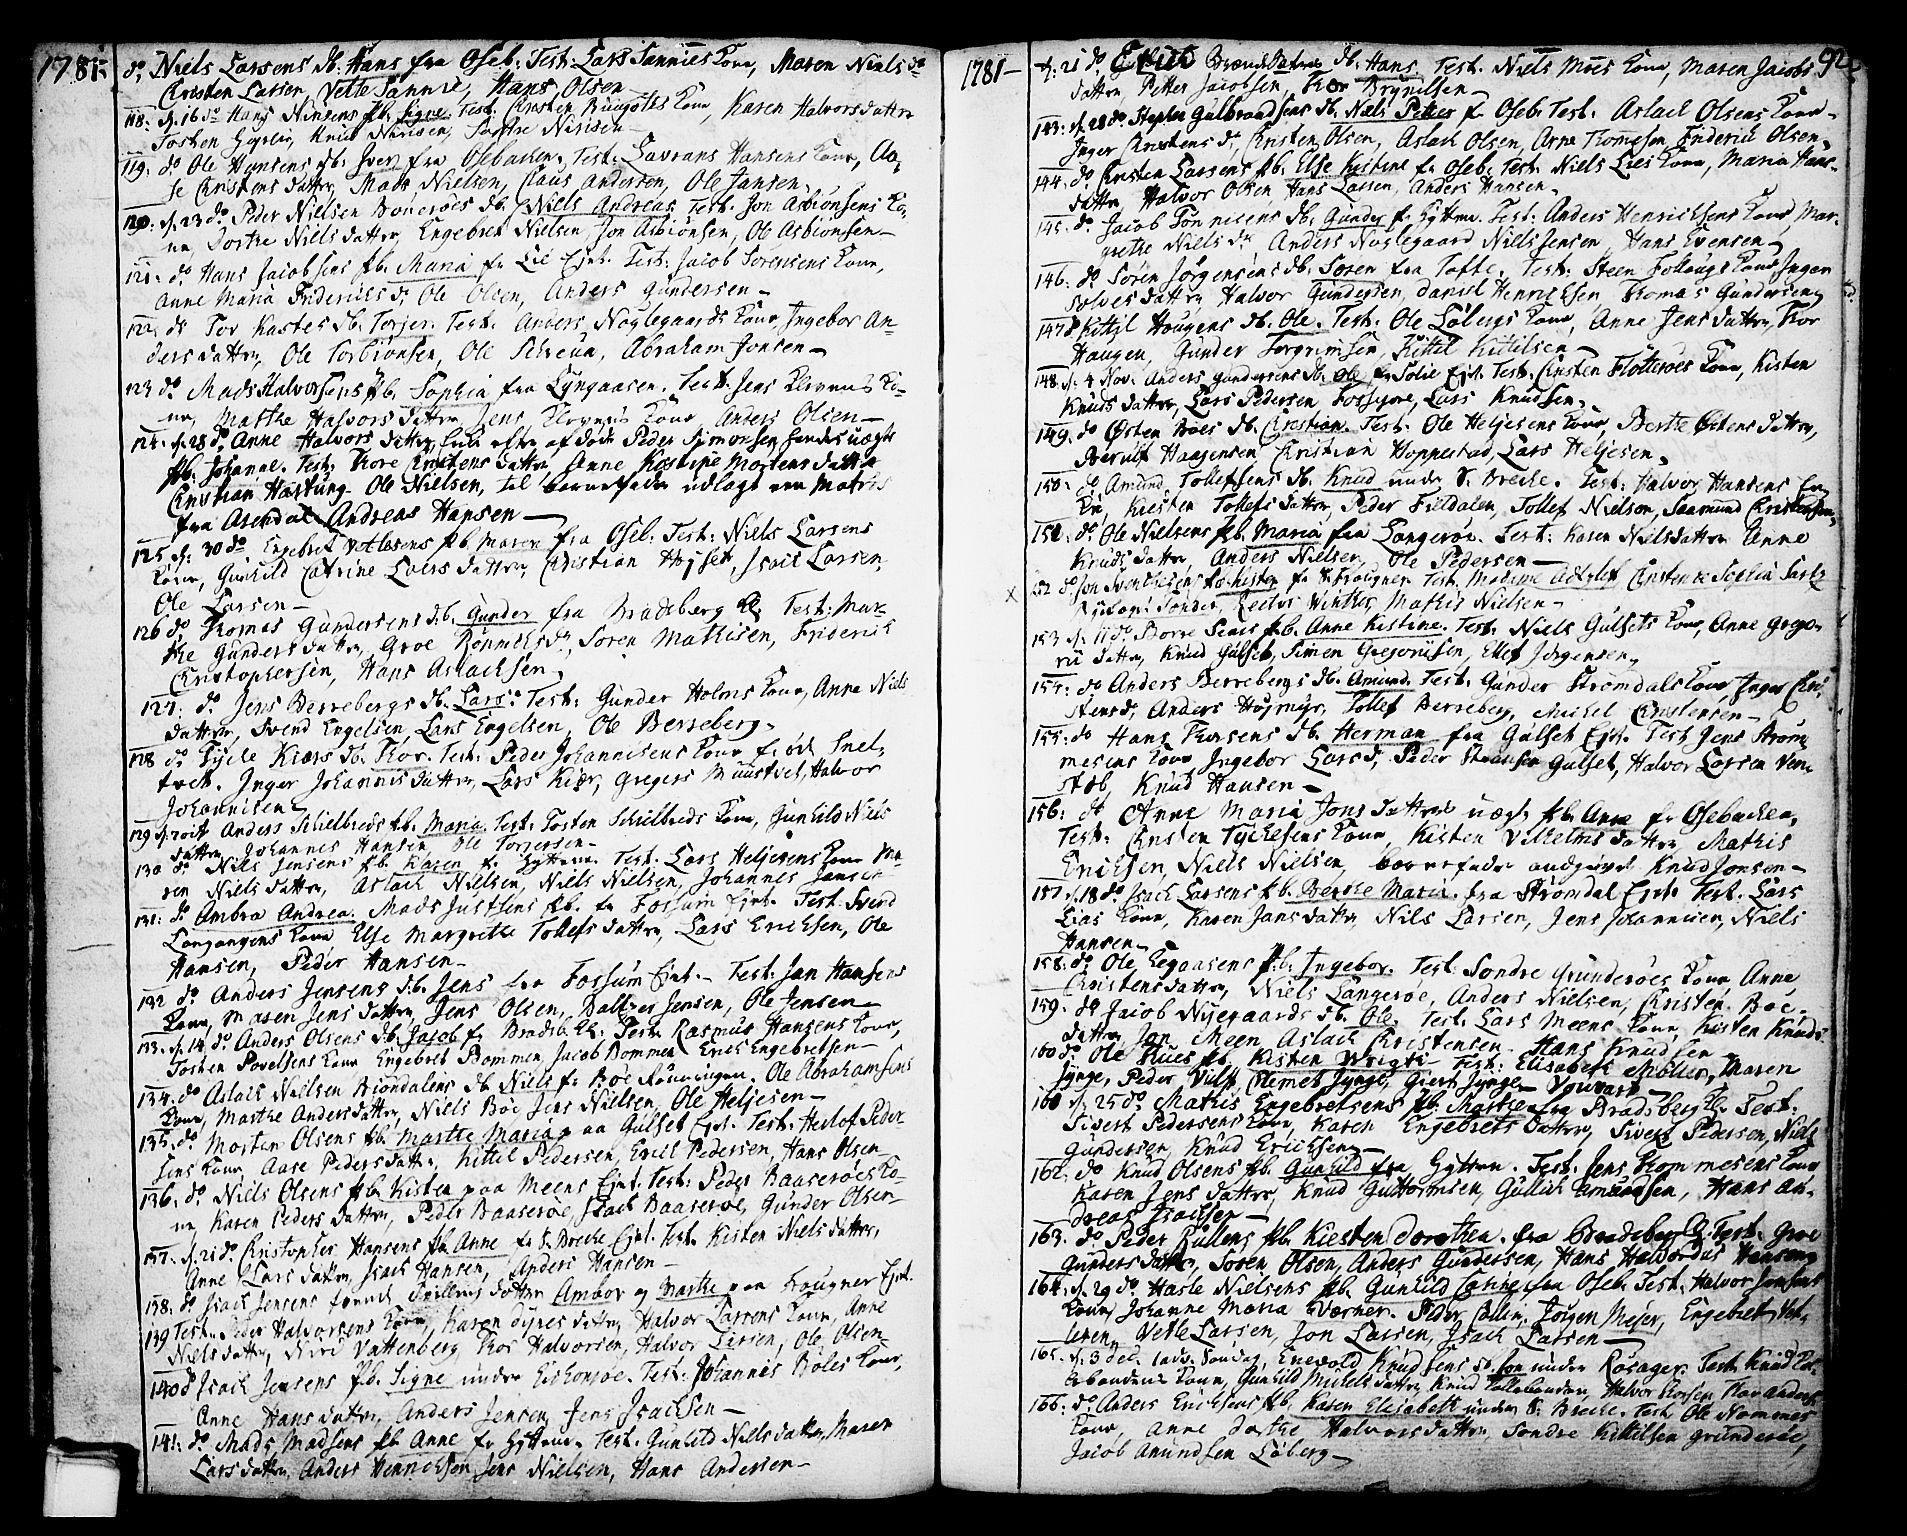 1781.
do Niels Larsens db. Hans fra Oseb. Test. Lars Tannies Kone, Maren Niels dr
Christen Larsen, Vetle Tannie, Hans Olsen
118: d. 16 do Hans Nirisens pb. Signe Test. Christen Kone, Karen Halvors datter
Tosten Knud Nirisen, Nirisen
119: do Ole Hansens db: Iver fra Osebachen. Test: Lavrans Hansens Kone, Aa-
se Christens datter, Mads Nielsen, Claus Andersen, Ole Jansen,
120: d. 23 do Peder Nielsen Bøuerøes db. Niels Andreas Test. Jon Asbiønsens Ko-
ne, Dorthe Niels datter, Engebret Nielsen, Jon Asbiønsen, Ole Asbiønsen
121: do Hans Jacobsens pb. Maria fr Lie Ejet. Test: Jacob Sørensens Kone,
Anne Maria Friderichs dr Ole Olsen, Anders Gundersen
122: do Tov Kastes db. Torjer. Test: Anders Noylegaards Kone, Ingebor An-
dersdatter, Ole Torbiønsen, Ole Schreen, Abraham Jonsen
123 do Mads Halvorsens pb. Sophia fra Lyngaasen. Test. Jens Ko-
ne, Marthe Halvors datter Jens Kone Anders Olsen
124: d. 28 do Anne Halvors datter Enke efter afdøde Peder Simonsen hendes uægte
pb. Johanne. Test: Thore Christens datter, Anne Mortens datter
Christian Hartung Ole Nielsen, til barnefader udlagt en Matros
fra Arendal Andreas Hansen
125 d: 30 do Engebret Olsens pb Maren fra Oseb: Test: Niels Larsens
Kone, Gunhild Catrine Laers datter, Christian Hojset, Isach Larsen,
Ole Larsen
126 do Thomas Gundersens db. Gunder fra Bradsberg Kl. Test: Mar-
the Gunders datter, Groe dr, Søren Mathisen, Friderich
Christophersen, Hans Aslachsen
127: do Jens Berrebergs db. Lars: Test: Gunder Holms Kone, Anne Niels
datter, Svend Engelsen, Lars Engelsen, Ole Berreberg
128 do Kiærs db. Thor. Test: Peder Johannesens Kone fr Snel-
tvedt. Inger Johannis datter, Lars Kiær, Gregers Halvor
Johannisen
129 Anders Schielbreds pb. Maria. Test: Tosten Schielbreds Kone, Gunhild Niels
datter, Johannes Hansen Ole Torjersen
130 do Nils Jensens pb. Karen fr Hyttene Test. Lars Heljesens Kone Ma-
ren Niels datter, Aslach Nielsen, Niels Nielsen, Johannes Jansen
131: do Ambra Andrea. Mads Justsens pb. fr Fossum Ejet. Test. Svend
Langangens Kone Else Margrethe Tollefs datter, Lars Erichsen, Ole
Hansen, Peder Hansen
132 do Anders Jensens db. Jens fra Fossum Ejet. Test: Jan Hansens
Kone, Maren Jens datter, Jens Olsen, Baltzer Jensen, Ole Jensen
133. d. 14 do Anders Olsens db. Jacob fr Bradsb. Kl. Test. Rasmus Hansens Kone,
Tosten Povelsens Kone Engebret Bommen, Jacob Bommen Erich Engebretsen
134: do Aslach Nielsen Biøndalens db Niels fr Bøe Ole Abrahamsens
Kone, Marthe Andersdatter, Niels Bøe Jens Nielsen, Ole Heljesen
135: do Morten Olsens pb. Marthe Maria paa Gulset Ejet. Test: Herlof Peder-
sens Kone, Aase Peders datter, Kittil Pedersen, Erich Pedersen, Hans Olsen
136. do Niels Olsens pb. Kisten paa Meens Ejet. Test: Peder Baaserøes Ko-
ne Karen Peders datter, Peder Baaserøe, Isach Baaserøe, Gunder Olsen
137. d. 21 do Christopher Hansens pb Anne fr Breche Ejet. Test. Kisten Niels datter,
Anne Lars datter, Isach Hansen, Anders Hansen
138: do Isach Jensens tvende datter Ambor og Marthe paa Fraugner Ejet.
139 Test. Peder Halvorsens Kone, Karen Dyres datter, Halvor Larsens Kone, Anne
Niels datter, Niri Vattenberg, Thor Halvorsen, Halvor Larsen, Ole Olsen
140 do Isach Jensens pb. Signe under Test: Johannes Bøles Kone,
Anne Hans datter, Anders Jensen, Jens Isachsen
141: do Mads Madsens pb. Anne fr Hyttene. Test. Gunhild Niels datter, Maren
Lars datter, Anders Henrichsen, Jens Nielsen, Hans Andersen
1781
92.
d: 21 do db. Hans Test. Niels Moes Kone, Maren Jacobs
datter, Petter Jacobsen, Thor Brynilsen
143: d. 28 do Stephen Gulbrandsens db. Niels Petter fr Oseb. Test: Aslach Olsens Kone
Inger Christens dr, Christen Olsen, Aslach Olsen, Arne Thomesen, Friderich Olsen
144: do Christen Larsens pb. Else Kistine fr Oseb. Test. Niels Lies Kone, Maria Hans-
datter, Halvor Olsen, Hans Larsen, Anders Hansen
145: do Jacob Tønnesens db. Gunder fr Hyttene. Test: Anders Henrichsens Kone, Mar-
grethe Niels dr Anders Noylegaard Niels Jensen, Hans Evensen
146: do Søren Jørgensens db. Søren fra Tofte. Test: Steen Kone Inger
Solves datter Halvor Gundersen, Daniel Henrichsen, Thomas Gundersen
147 do Kittil Hougens db. Ole. Test: Ole Løbergs Kone, Anne Jens datter, Thor
Haugen, Gunder Torgrimsen, Kittil Kittilsen
148. d. 4 Nov. Anders Gundersens db. Ole fr Solie Ejet. Test. Christen Flotterøes Kone, Kisten
Knuds datter, Lars Pedersen Lars Knudsen
149. do Østen Bøes db. Christian. Test: Ole Heljesens Kone, Berthe Østens datter,
Berulf Haagensen Christian Hoppestad, Lars Heljesen
150: do Amund Tollefsens db. Knud under Breche. Test: Halvor Hansens En-
ke, Kiersten Tollefs datter, Peder Fieldalen, Tollef Nielsen, Saamund Christensen
151: do Ole Nielsens pb. Maria fra Langerøe. Test: Karen Nielsdatter Anne
Knuds datter, Anders Nielsen, Ole Pedersen
152 do Jon Kisten fr Fraugner Test. Madame Christence Sophia
Sønder, Rector Winther, Mathis Nielsen
153 d. 11 do Børre pb. Anne Kistine. Test: Niels Gulsets Kone, Anne Grego-
rii datter, Knud Gulset, Simen Gregorisen, Ellef Jørgensen
154: do Anders Berrebergs db. Amund. Test: Gunder Strømdals Kone Inger Chri-
stens dr, Anders Højmyr, Tollef Berreberg, Michel Christensen
155: do Hans Thorsens db. Herman fra Gulset Ejet. Test Jens Strøm
mesens Kone Ingebor Lars dr, Peder Gulset, Halvor Larsen Ven-
støb, Knud Hansen
156: do Anne Maria Jons datters uægte pb. Anne fr Osebachen,
Test: Christen Tychesens Kone, Kisten Vilhelms datter, Mathis
Erichsen, Niels Nielsen, barnefader angivet Knud Jonsen
157 d. 18 do Isach Larsens pb. Berthe Maria fra Strømdal Ejet. Test. Lars
Lias Kone, Karen Jans datter, Nils Larsen, Jens Johannisen, Niels
Hansen
158: do Ole Legaasens pb. Ingebor. Test: Sondre Grunderøes Kone, Anne
Christensdatter, Niels Langerøe, Anders Nielsen, Christen Bøe
159. do Jacob Nyegaards db. Ole. Test: Lars Meens Kone, Kisten Knuds
datter, Jon Meen Aslach Christensen Hans Knudsen
160 do Ole pb. Kisten Test: Elisabeth Møller, Maren
Jynge, Peder Clemet Jynge, Giert Jynge
160 d. 25 do Mathis Engebretsens pb. Marthe fra Bradsberg Kl. Test:
Sivert Pedersens Kone, Karen Engebrets datter, Sivert Pedersen, Niels
Gundersen, Knud Erichsen
162: do Knud Olsens pb. Gunhild fra Hyttene. Test: Jens Thommesens Kone
Karen Jens datter, Knud Guttormsen, Gullich Amundsen, Hans An-
dreas Isachsen
163: do Peder Kullens pb. Kiersten Dorothea. fra Bradsberg Kl. Test. Groe
Gunders datter, Søren Olsen, Anders Gundersen, Hans Halvor Hansen
164. d. 29 do Hasle Nielsens pb. Gunhild fra Oseb. Test. Halvor Jonsens
Kone, Johanne Maria Værner. Peder Collin, Jørgen Mejer, Engebret Vet-
lesen, Vetle Larsen, Jon Larsen, Isach Larsen
165. d. 3 Dec. 1 adv. Søndag, Enevold Knudsens db. Jon under Røsager. Test. Knud
Kone, Gunhild Michels datter, Knud Halvor Thorsen, Thor Anders
166: do Anders Erichsens pb. Karen Elisabeth under Breche. Test Ole Nommes
Kone, Anne Dorthe Halvors datter, Sondre Kittilsen Grunderøe,
Jacob Amundsen Løberg